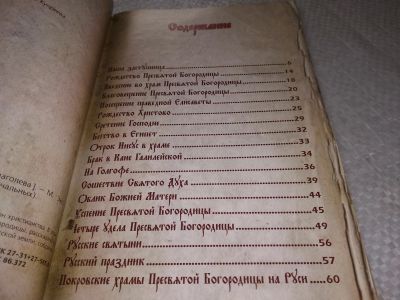 Содержание
Наша заступница 6
Рождество Пресвятой Богородицы 14
Введение во храм Пресвятой Богородицы 18
Благовещение Пресвятой Богородицы 20
Посещение праведной Елисаветы 23
Рождество Христово 25
Сретение Господне 29
Бегство в Египет 32
Отрок Иисус в храме 33
Брак в Кане Галилейской 34
На Голгофе 36
Сошествие Святого Духа 39
Облик Божией Матери 41
Успение Пресвятой Богородицы 44
Четыре Удела Пресвятой Богородицы 45
Русские святыни 49
Русский праздник 56
Покровские храмы Пресвятой Богородицы на Руси 57
60